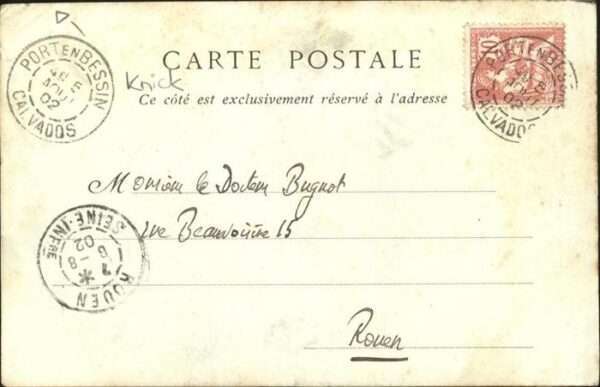 CARTE POSTALE
Knick
Ce côté est exclusivement réservé à l'adresse
PORT EN BESSIN
02
CALVADOS
10
PORT EN BESSIN
02
CALVADOS
Monsieur le Docteur Bugnot
rue Beauvoisine 15
Rouen
ROUEN
7 * 8
02
SEINE-INFRE